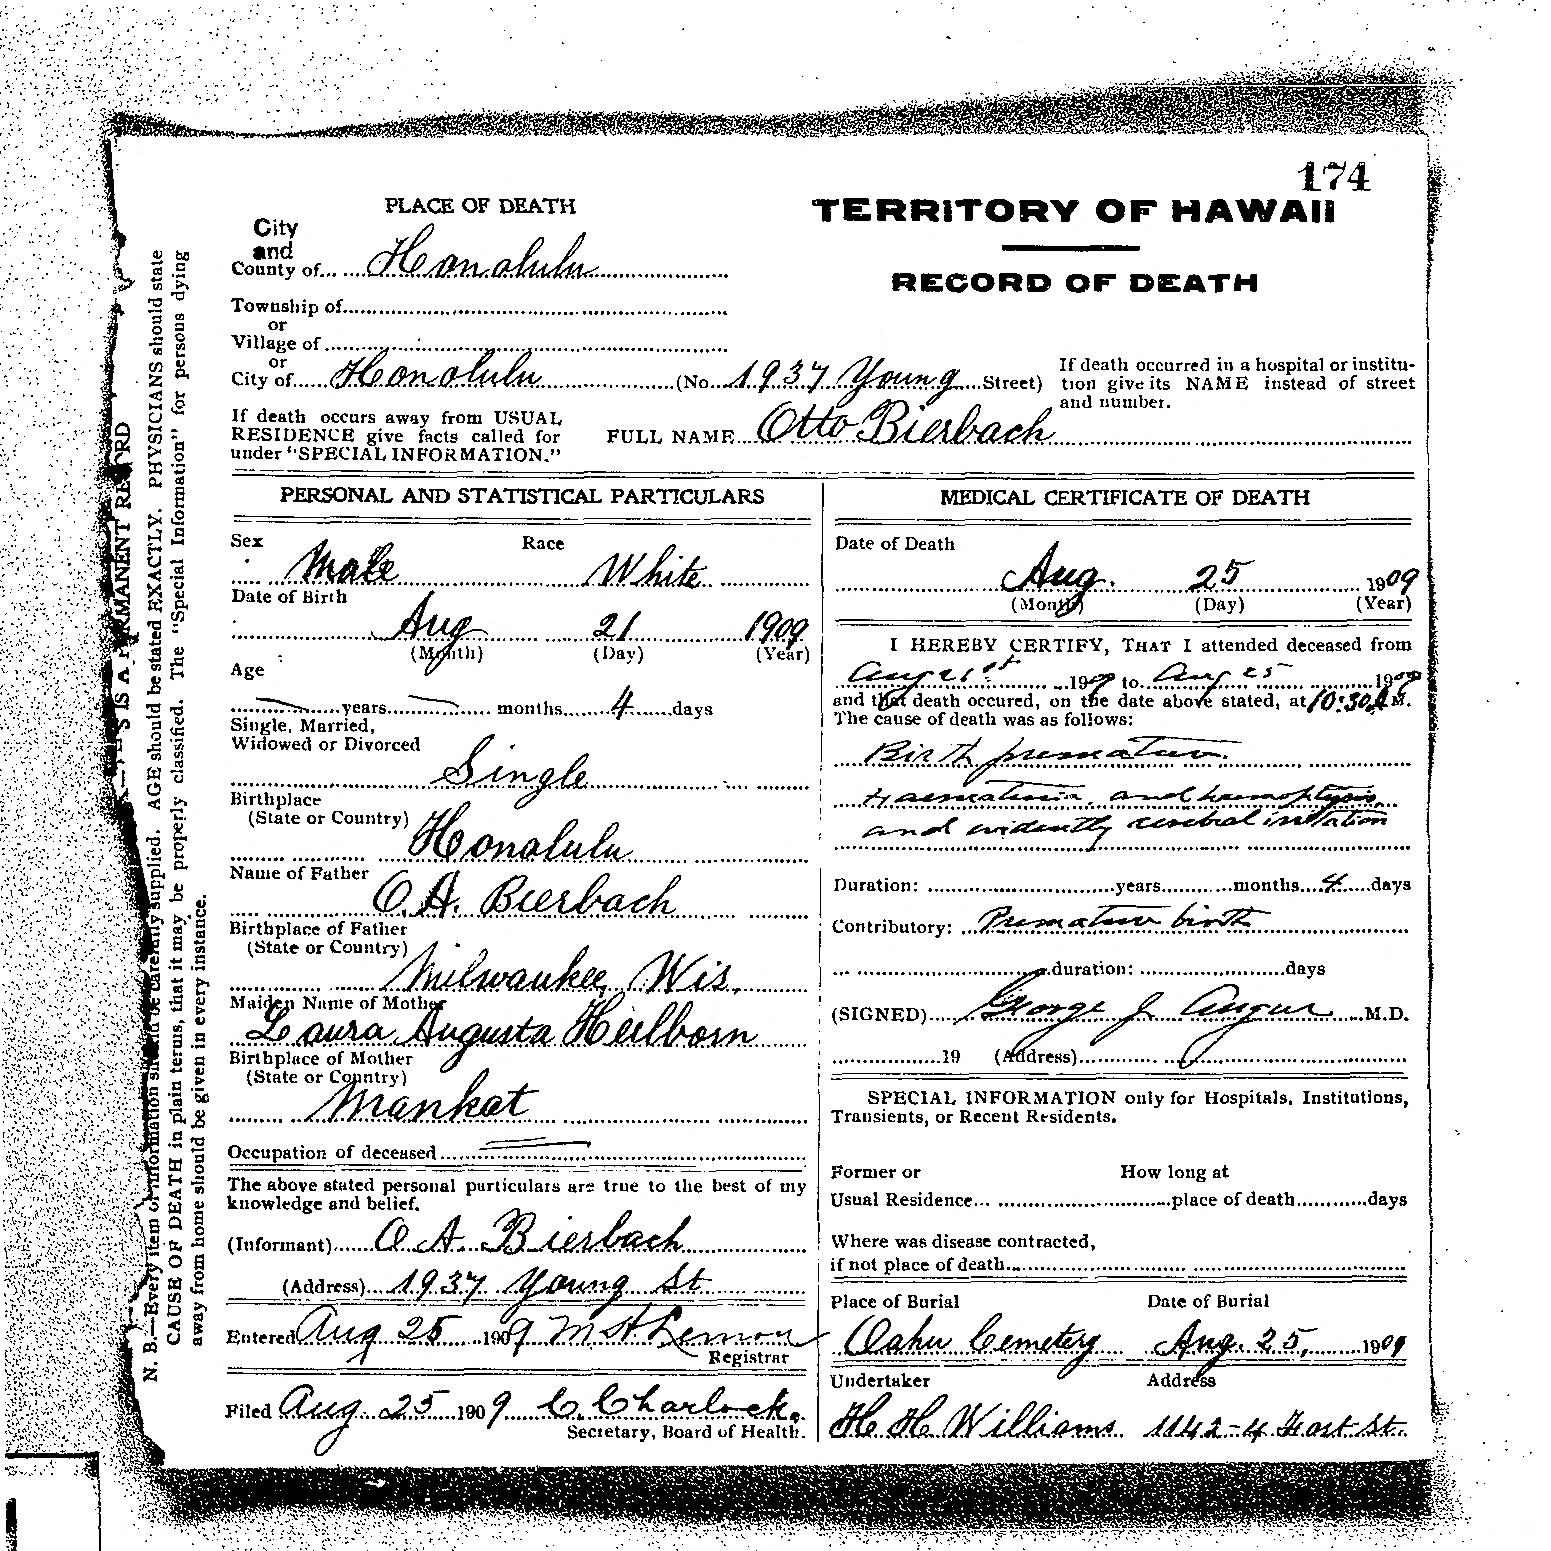 174
PLACE OF DEATH
TERRITORY OF HAWAII
RECORD OF DEATH
City
and
County of Honolulu
Township of
or
Village of
or
City of Honolulu (No. 1937 Young Street)
If death occurred in a hospital or institu-
tion give its NAME instead of street
and number.
If death occurs away from USUAL
RESIDENCE give facts called for
under "SPECIAL INFORMATION."
FULL NAME Otto Bierbach
PERSONAL AND STATISTICAL PARTICULARS
Sex Race
Male White
Date of Birth
Aug 21 1909
(Month) (Day) (Year)
Age
years months 4 days
Single, Married,
Widowed or Divorced
Single
Birthplace
(State or Country)
Honolulu
Name of Father
O. A. Bierbach
Birthplace of Father
(State or Country)
Milwaukee, Wis.
Maiden Name of Mother
Laura Augusta Heilborn
Birthplace of Mother
(State or Country)
Mankat
Occupation of deceased
The above stated personal particulars are true to the best of my
knowledge and belief.
(Informant) O A. Bierbach
(Address) 1937 Young St
Entered Aug 25 1909 M H Lemon
Registrar
Filed Aug 25 1909 C. Charlock.
Secretary, Board of Health.
MEDICAL CERTIFICATE OF DEATH
Date of Death
Aug. 25 1909
(Month) (Day) (Year)
I HEREBY CERTIFY, THAT I attended deceased from
Aug 21st 1909 to Aug 25 1909
and that death occured, on the date above stated, at 10:30 A M.
The cause of death was as follows:
Birth premature.
and haemoptysis,
and evidently cerebral irritation
Duration: years months 4 days
Contributory: Premature birth
duration: days
(SIGNED) George J Augur M.D.
19 (Address)
SPECIAL INFORMATION only for Hospitals, Institutions,
Transients, or Recent Residents.
Former or How long at
Usual Residence place of death days
Where was disease contracted,
if not place of death
Place of Burial Date of Burial
Oahu Cemetery Aug. 25, 1909
Undertaker Address
H H Williams 1142-4 Fort St.
N. B.—Every item of information should be carefully supplied. AGE should be stated EXACTLY. PHYSICIANS should state
CAUSE OF DEATH in plain terms, that it may be properly classified. The "Special Information" for persons dying
away from home should be given in every instance.
THIS IS A PERMANENT RECORD